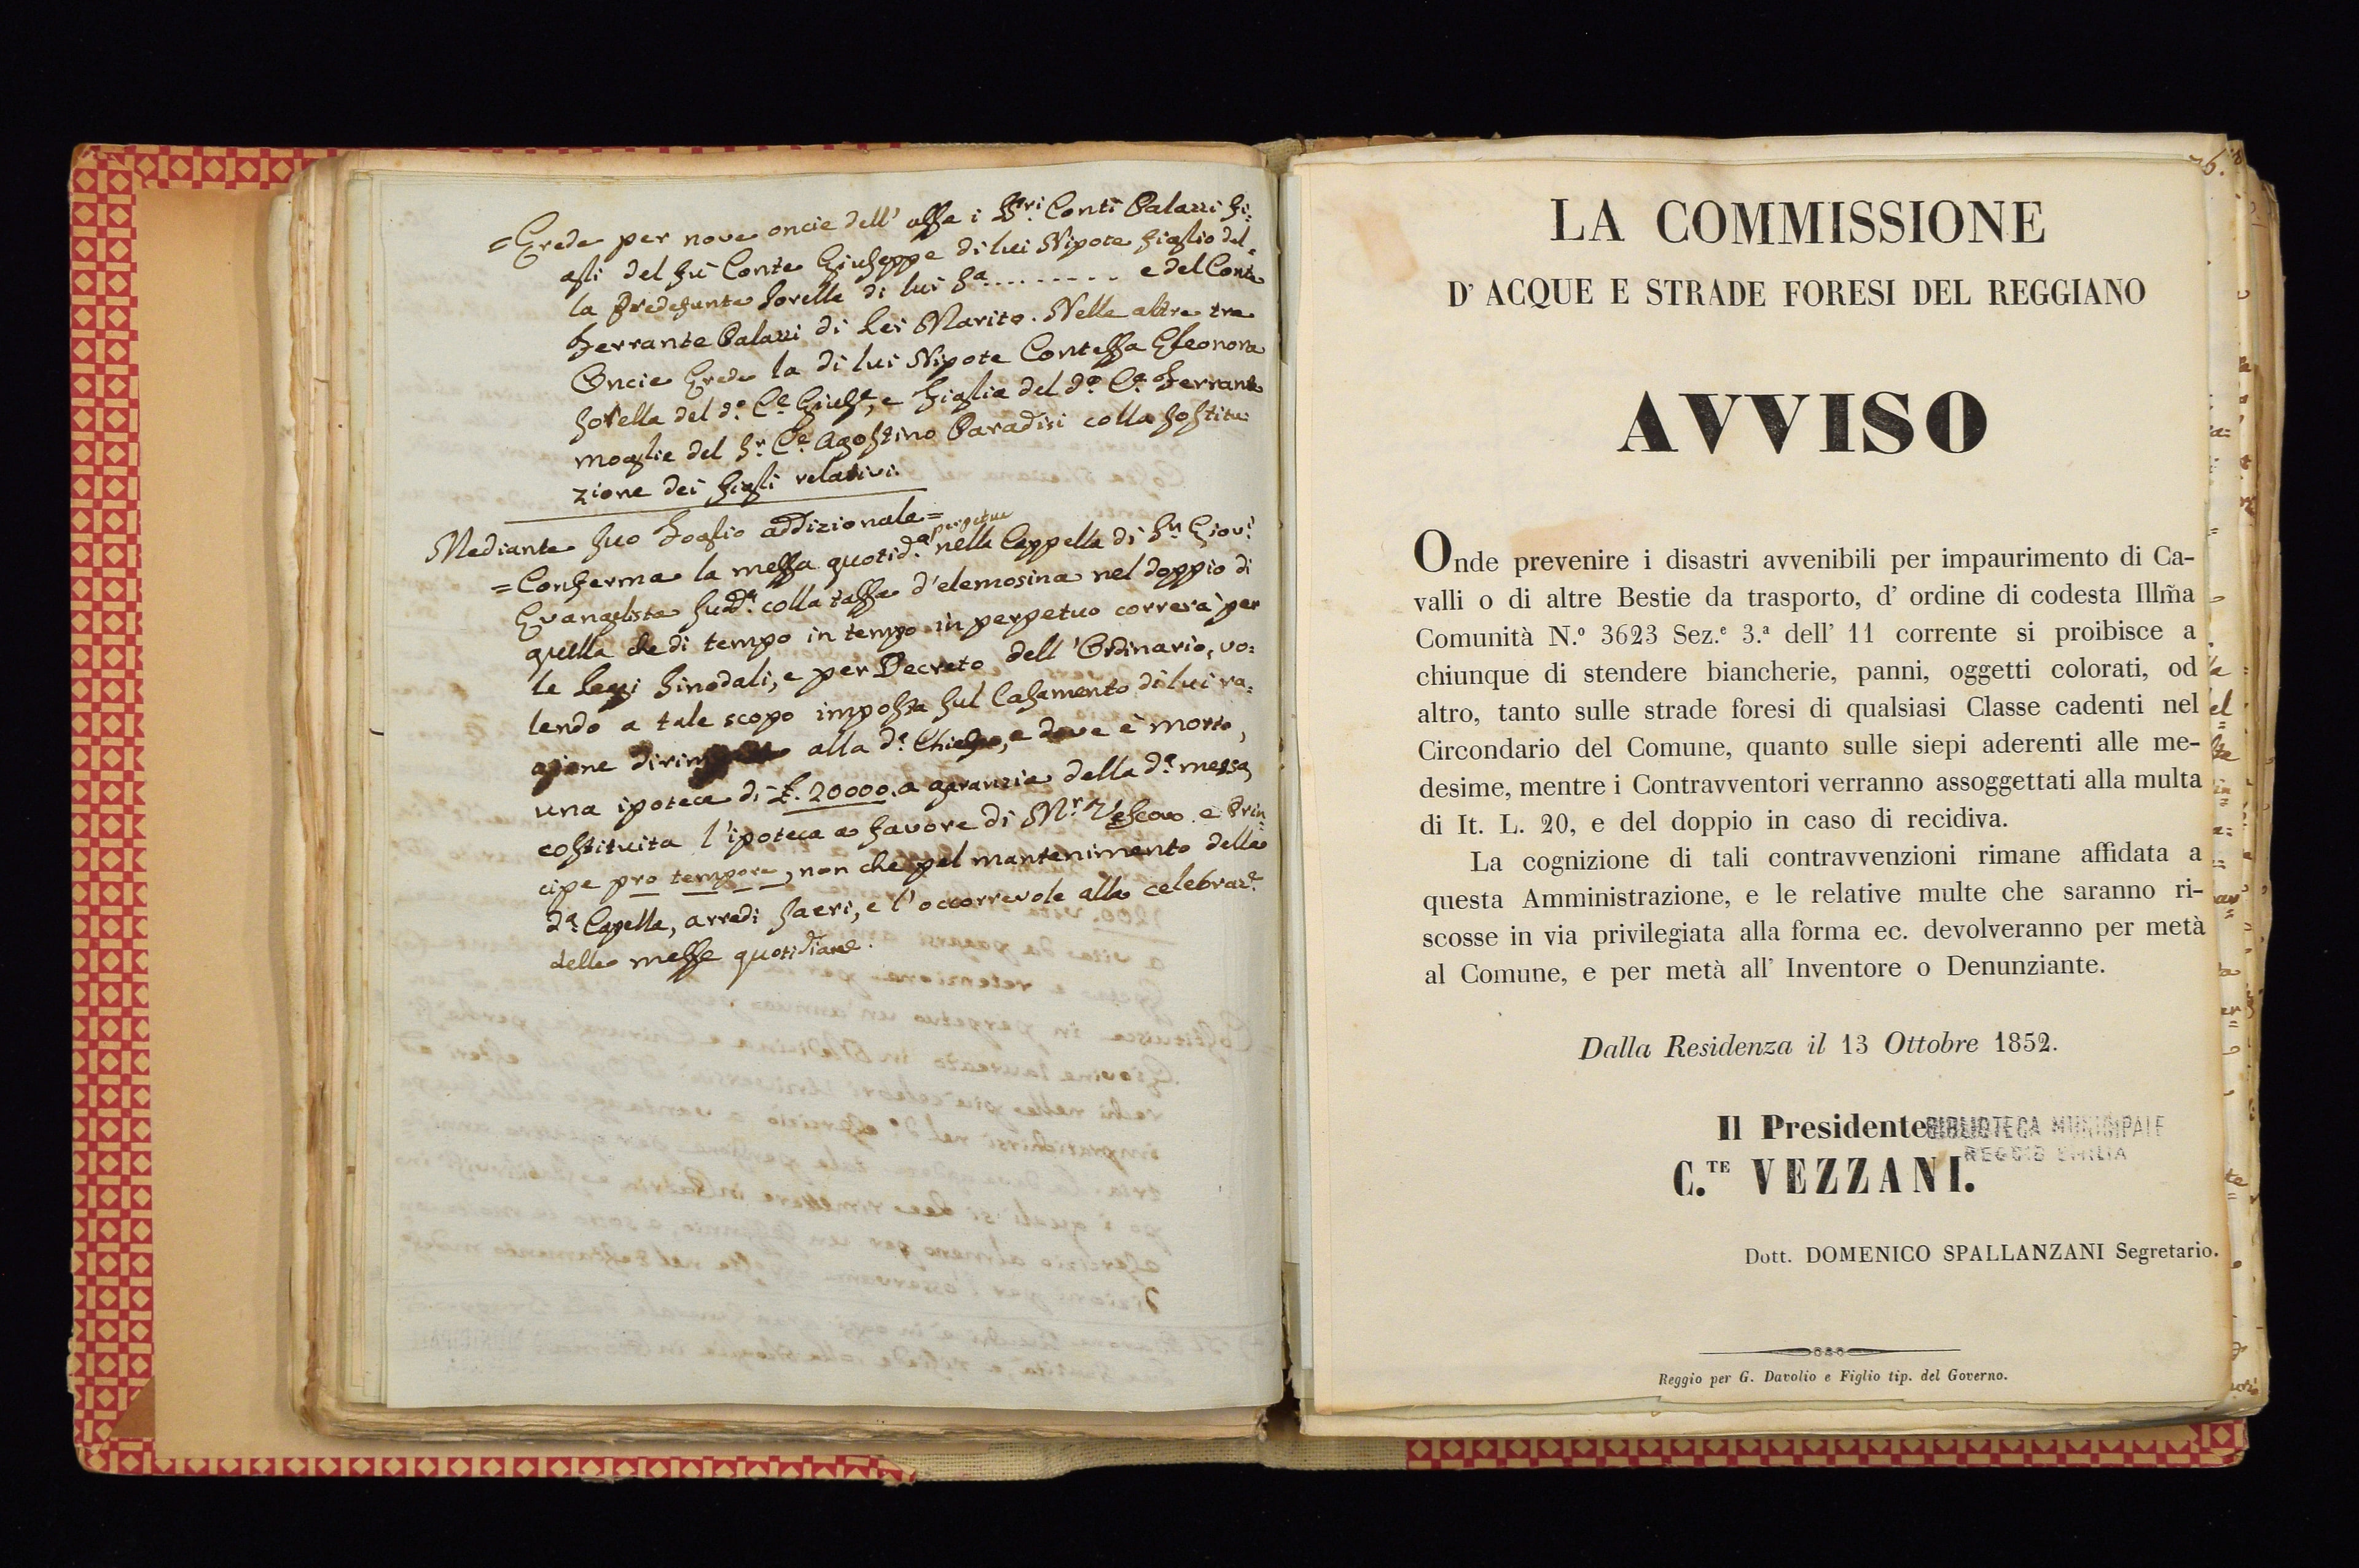 =Erede per nove oncie dell' asse i Sri Conti Palazzi fi:
gli del fù Conte Giuseppe di lui Nipote figlio del=
la predefunta sorella di lui Sa......... e del Conte
Ferrante Palazzi di Lei Marito. Nelle altre tre
Oncie Erede la di lui Nipote Contessa Eleonora
sorella del do. Ce. Giuse, e figlia del do. Ce. Ferrante
moglie del Sr. Ce. Agostino Paradisi colla sostitu
zione dei figli relativi.
Mediante suo foglio addizionale=
=Conferma la messa quotida. perpetua nella Cappella di Sn. Giovi.
Evangelista sudda. colla tassa d'elemosina nel doppio di
quella che di tempo in tempo in perpetuo correrà per
le Leggi Sinodali, e per Decreto dell'Ordinario, vo:
lendo a tale scopo imposta sul Casamento di lui ra:
gione alla da. Chiesa, e dove è morto,
una ipoteca di £. 20000. a garanzia della da. messa,
costituita l'ipoteca a favore di Mr. Vescovo e Prin
cipe pro tempore, non che pel mantenimento della
da. Capella, arredi sacri, e l'occorrevole alla celebraze.
delle messe quotidiane.
LA COMMISSIONE
D' ACQUE E STRADE FORESI DEL REGGIANO
AVVISO
Onde prevenire i disastri avvenibili per impaurimento di Ca-
valli o di altre Bestie da trasporto, d' ordine di codesta Illm̃a
Comunità N.º 3623 Sez.ᵉ 3.ª dell' 11 corrente si proibisce a
chiunque di stendere biancherie, panni, oggetti colorati, od
altro, tanto sulle strade foresi di qualsiasi Classe cadenti nel
Circondario del Comune, quanto sulle siepi aderenti alle me-
desime, mentre i Contravventori verranno assoggettati alla multa
di It. L. 20, e del doppio in caso di recidiva.
La cognizione di tali contravvenzioni rimane affidata a
questa Amministrazione, e le relative multe che saranno ri-
scosse in via privilegiata alla forma ec. devolveranno per metà
al Comune, e per metà all' Inventore o Denunziante.
Dalla Residenza il 13 Ottobre 1852.
Il Presidente
BIBLIOTECA MUNICIPALE
REGGIO EMILIA
C.TE VEZZANI.
Dott. DOMENICO SPALLANZANI Segretario.
Reggio per G. Davolio e Figlio tip. del Governo.